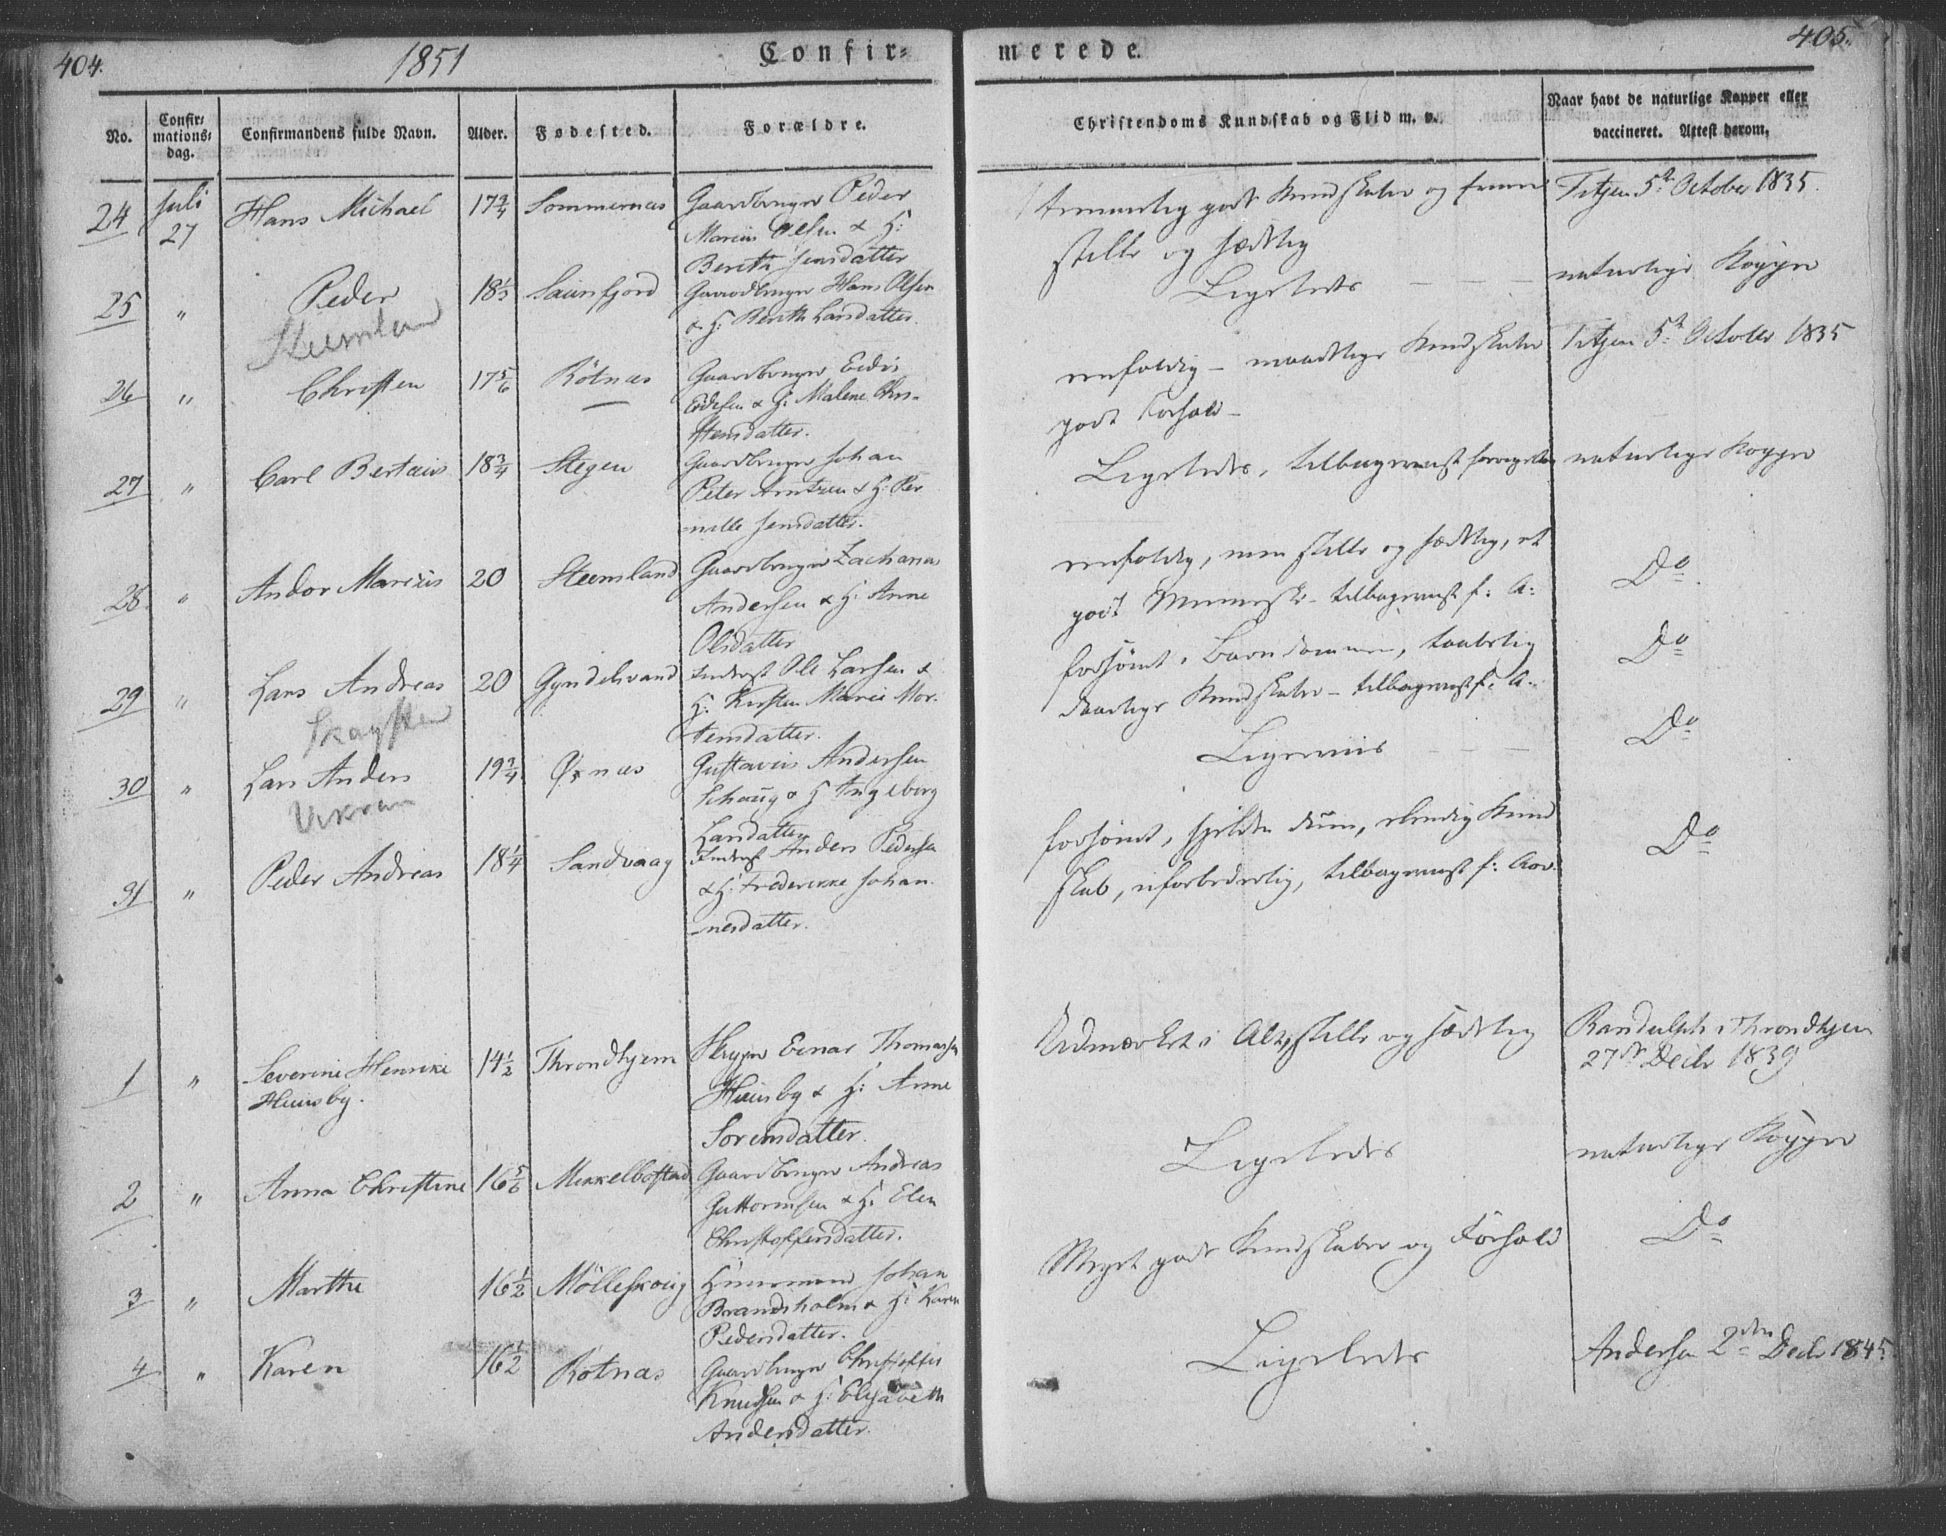 404.
1851
Confir=
merede.
405.
No.
Confir=
mations=
dag.
Confirmandens fulde Navn.
Alder.
Fødested.
Forældre.
Christendoms Kundskab og Flid m. v.
Naar havt de naturlige Kopper eller
vaccineret. Attest derom.
24 Juli 27 Hans Michael 17 3/4 Sommernæs Gaardbruger Peder
Marius Olsen & H:
Bereth Jensdatter
godt Kundskaber og
stille og sædelig
5te October 1835.
25 " Peder 18 1/3 Gaardbruger Hans Olsen
& H: Berith Larsdatter.
Ligeledes
naturlige Kopper
26 " Christen 17 5/6 Rötnæs Gaardbruger
& H: Malene Chri-
stensdatter.
enfoldig - maadelige Kundskaber
godt Forhold -
5te October 1835
27 " Carl Bertæus 18 3/4 Stegen Gaardbruger Johan
Peter Arntzen & H: Per
nille Jensdatter.
Ligeledes, tilbageviist
naturlige Kopper
28 " Andor Marius 20 Steensland Gaardbruger Zacharia
Andersen & H: Anne
Olsdatter
enfoldig, men stille og sædelig, et
godt Menneske - tilbageviist f: A:
Do
29 " Lars Andreas 20 Gyndelvand Inderst Ole Larsen &
H: Kirsten Marie Mor-
tensdatter.
forsömt i Barndommen, taabelig
daarlige Kundskaber - tilbageviist f: A:
Do
30 " Lars Anders 19 3/4 Øxnæs Gustavus Andersen
Schaug & H Ingeborg
Larsdatter
Ligerviis
Do
31 " Peder Andreas 18 1/4 Sandvaag Inderst Anders Pedersen
& H: Frederikke Johan
-nesdatter.
forsömt, dum, elendig Kund
skab, uforbederlig, tilbageviist f: Aar.
Do
1 " Severine Henrike 14 1/2 Throndhjem Einar Thomassen
Huusby.
Huusby & H: Anne
Sorensdatter.
Udmærket i Alt, stille og sædelig
Randulph i Throndhjem
27de Decbr 1839
2 " Anna Christine 16 5/6 Mikkelbostad Gaardbruger Andreas
Guttormsen & H: Elen
Christoffersdatter.
Ligeledes
naturlige Kopper
3 " Marthe 16 1/2 Mölleskoug Huusmand Johan
Brandsholm & H: Karen
Pedersdatter.
Meget godt Kundskaber og Forhold
Do
4 " Karen 16 1/2 Rotnæs Gaardbruger Christoffer
Knudsen & H: Elisabeth
Andersdatter.
Ligeledes
Andersen 2den Decbr 1845